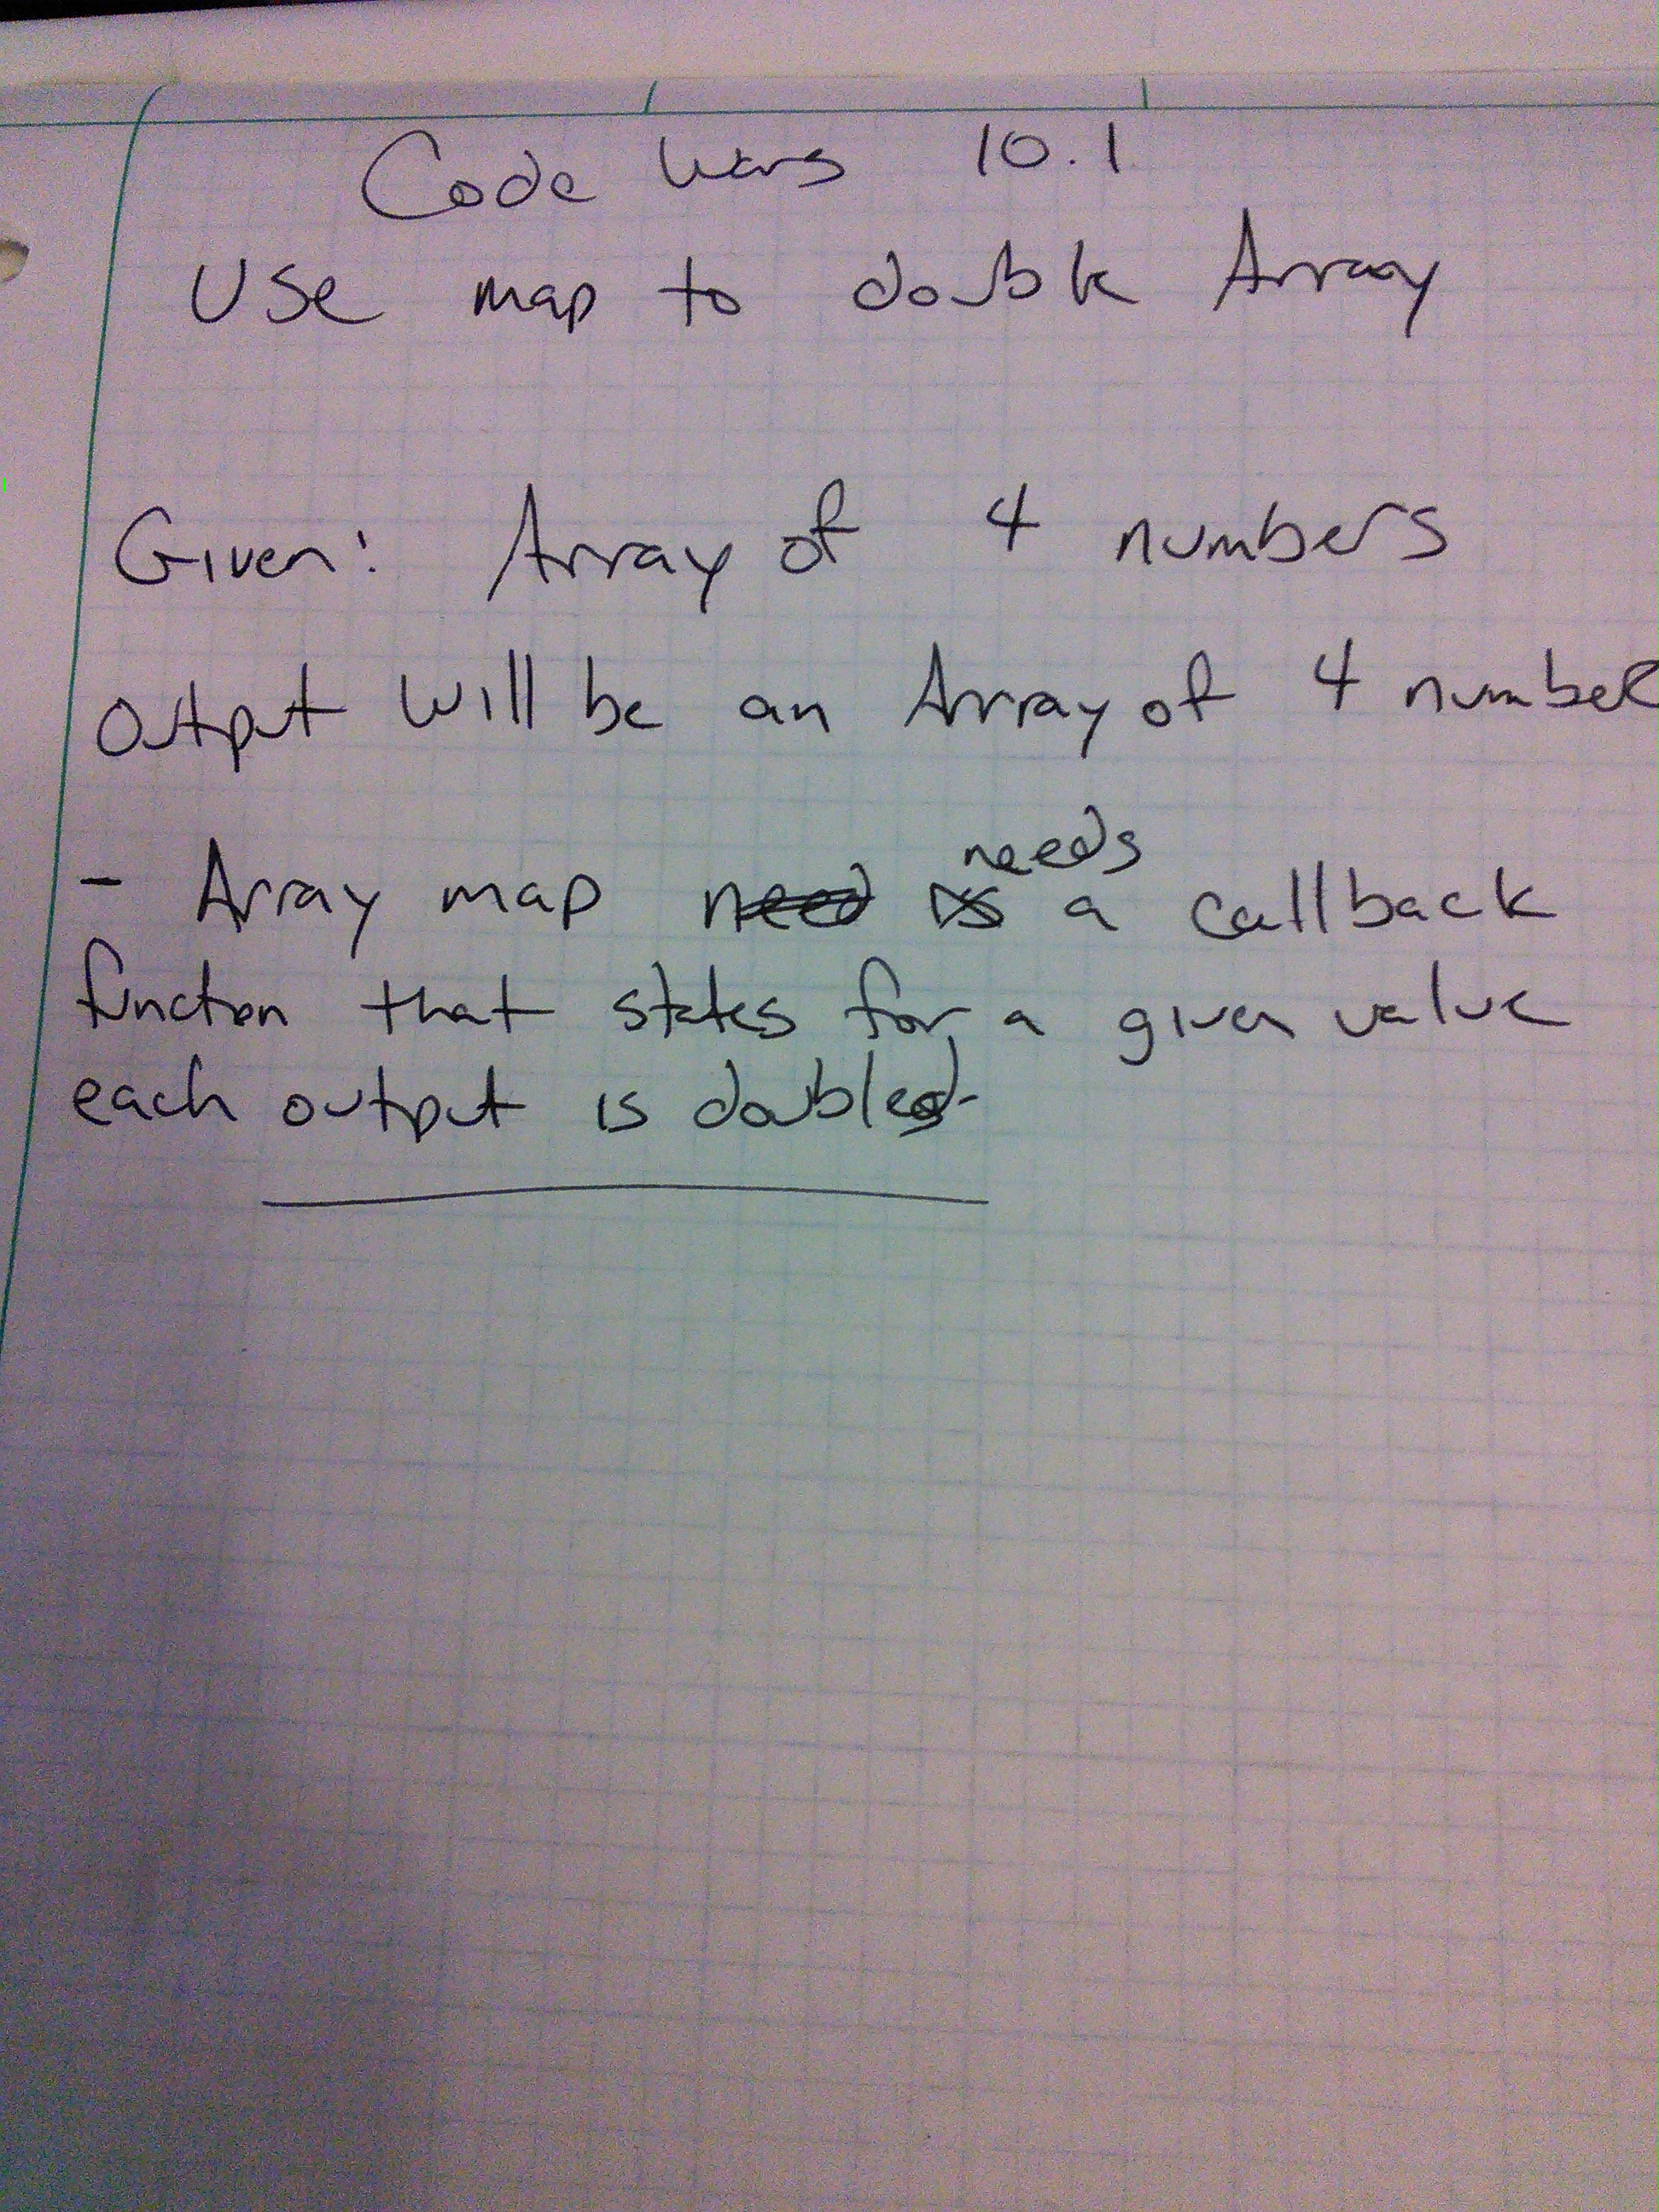 Code Wars 10.1
Use map to double Array
Given: Array of 4 numbers
Output will be an Array of 4 number
- Array map need is needs a callback
function that states for a given value
each output is doubled.